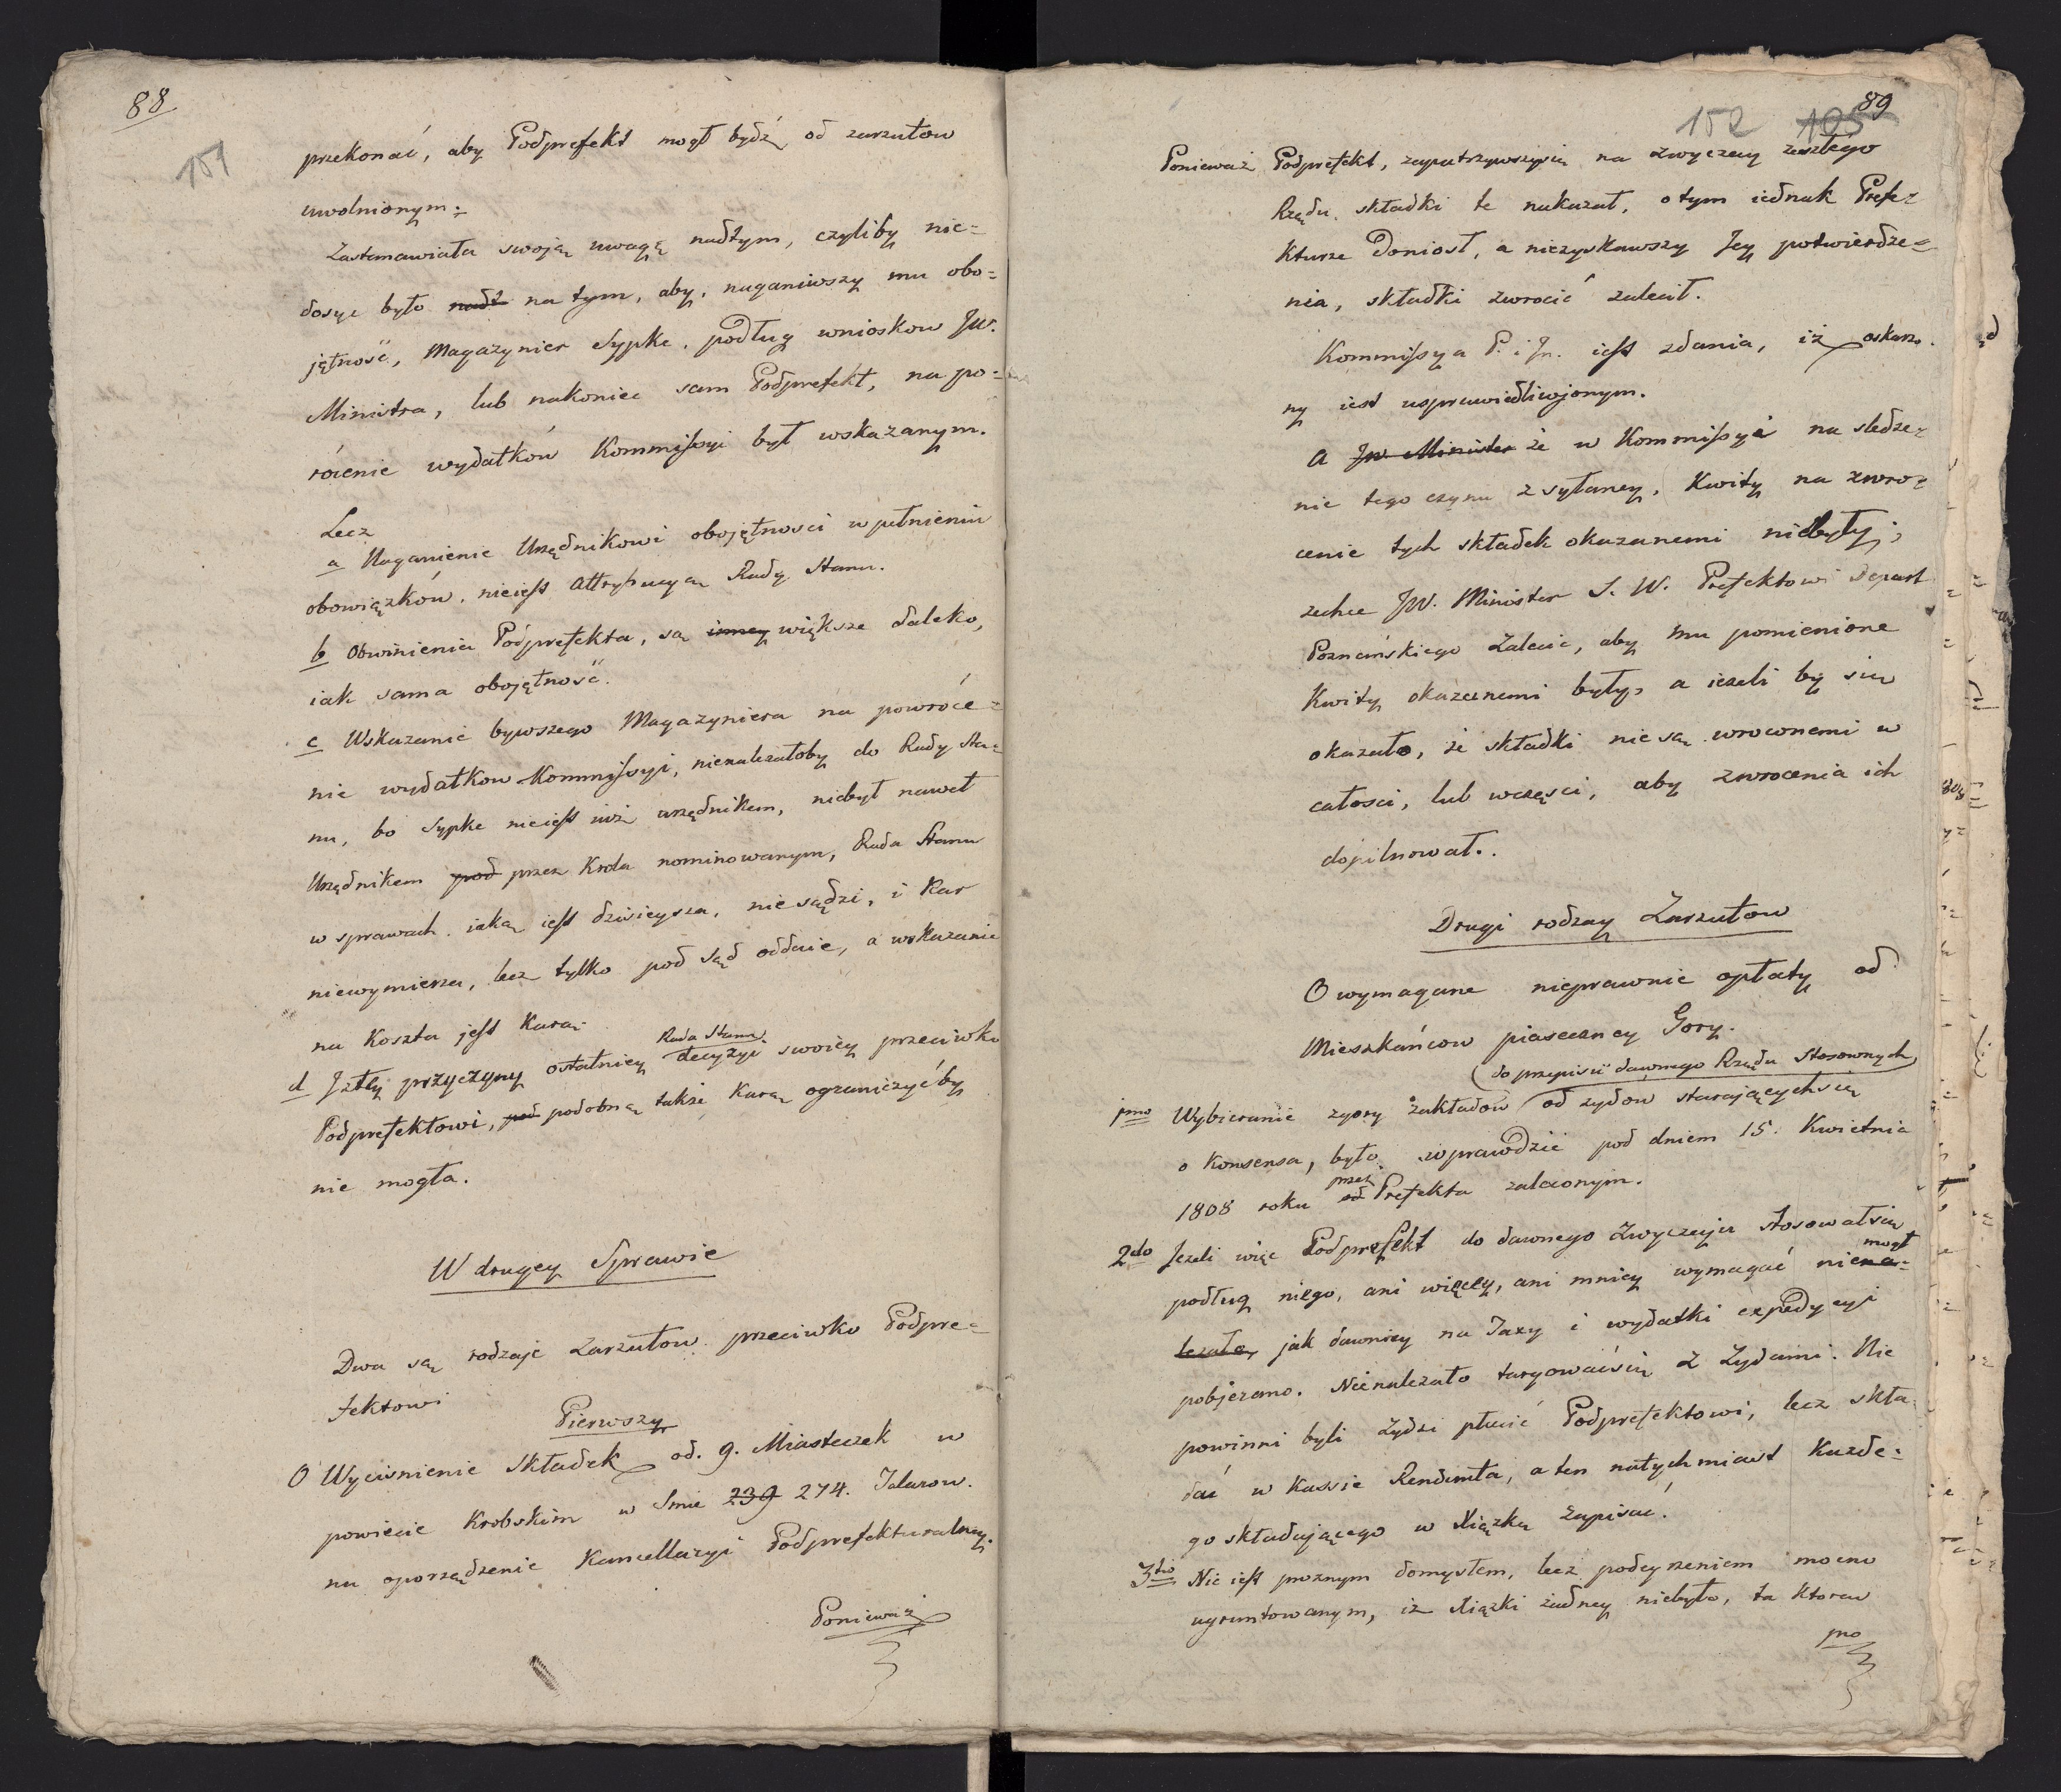 88
151
przekonać, aby Podprefekt mogł bydź od zarzutow
uwolnionym.
Zastanawiała swoją uwagę nadtym, czyliby nie=
dosyc było nadt na tym, aby, naganiwszy mu obo=
jętność, Magazynier Sypke, podług wnioskow JW.
Ministra, lub nakoniec sam Podprefekt, na po=
rócenie wydatków Kommissyi był wskazanym.
Lecz
a Naganienie Urzędnikowi obojętnosci w pełnieniu
obowiązków, nieiest attrybucyą Rady Stanu.
b Obwinienia Podprefekta, są inney większe daleko,
iak sama obojętność.
c Wskazanie bywszego Magazyniera na powróce=
nie wydatkow Kommissyi, nienależałoby do Rady Sta=
nu, bo Sypke nieiest iuż urzędnikem, niebył nawet
Urzędnikem pod przez Krola nominowanym, Rada Stanu
w sprawach iaką iest dzisieysza, nie sądzi, i Kar
niewymierza, lecz tylko pod sąd oddaie, a wskazanie
na Koszta jest Karą.
d Jztey przyczyny ostatniey Rada Stanu decyzyi swoiey przeciwko
Podprefektowi, pod podobną także Karą ograniczyćby
nie mogła.
W drugey Sprawie
Dwa są rodzaje Zarzutow przeciwko Podpre=
fektowi
Pierwszy
O Wycisnienie Składek od 9. Miasteczek w
powiecie Krobskim w Smie 239 274. Talarow.
na oporządzenie Kancellaryi Podprefekturalney.
Ponieważ
89
152 105
Ponieważ Podprefekt, zapatrzywszysię na zwyczay zeszłego
Rządu, składki te nakazał, o tym iednak Prefe=
kturze Doniosł, a niezyskawszy Jey potwierdze=
nia, składki zwrocić zalecił.
Kommissya P. i In. iest zdania, iż oskarzo.
ny iest usprawiedliwjonym.
A JW. Minister że w Kommissyi na sledze=
nie tego czynu zsyłaney, Kwity na zwro=
cenie tych składek okazanemi niebyły;
zechce JW. Minister S. W. Prefektowi Depart
Poznańskiego Zalecic, aby mu pomienione
Kwity okazanemi były, a iezeli by się
okazało, że składki nie są wroconemi w
całosci, lub wczęsci, aby zwrocenia ich
dopilnował.
Drugi rodzay Zarzutow
O wymagane nieprawnie opłaty od
Mieszkańcow piaseczney Gory.
do przepisu dawnego Rządu Stosownych
1mo Wybieranie zgory zakładów od zydów starającychsię
o Konsensa, było wprawdzie pod dniem 15. Kwietnia
1808 roku od przez Prefekta zaleconym.
2do Jezeli więc Podprefekt do dawnego zwyczaju stosowałsię
podług niego, ani więcey, ani mniey wymagać niena= mogł
lezało, jak dawniey na Taxy i wydatki expedycyi
pobjerano. Nienalezało targowaćsię z Zydami. Nie
powinni byli Zydzi płacić Podprefektowi, lecz skła=
dać w Kassie Rendanta, a ten natychmiast Kazde=
go składającego w Xiązkę Zapisać.
3tio Nie iest proznym domysłem, lecz podeyrzeniem mocno
ugruntowanym, iz Xiązki żadney niebyło, ta ktorą
pro